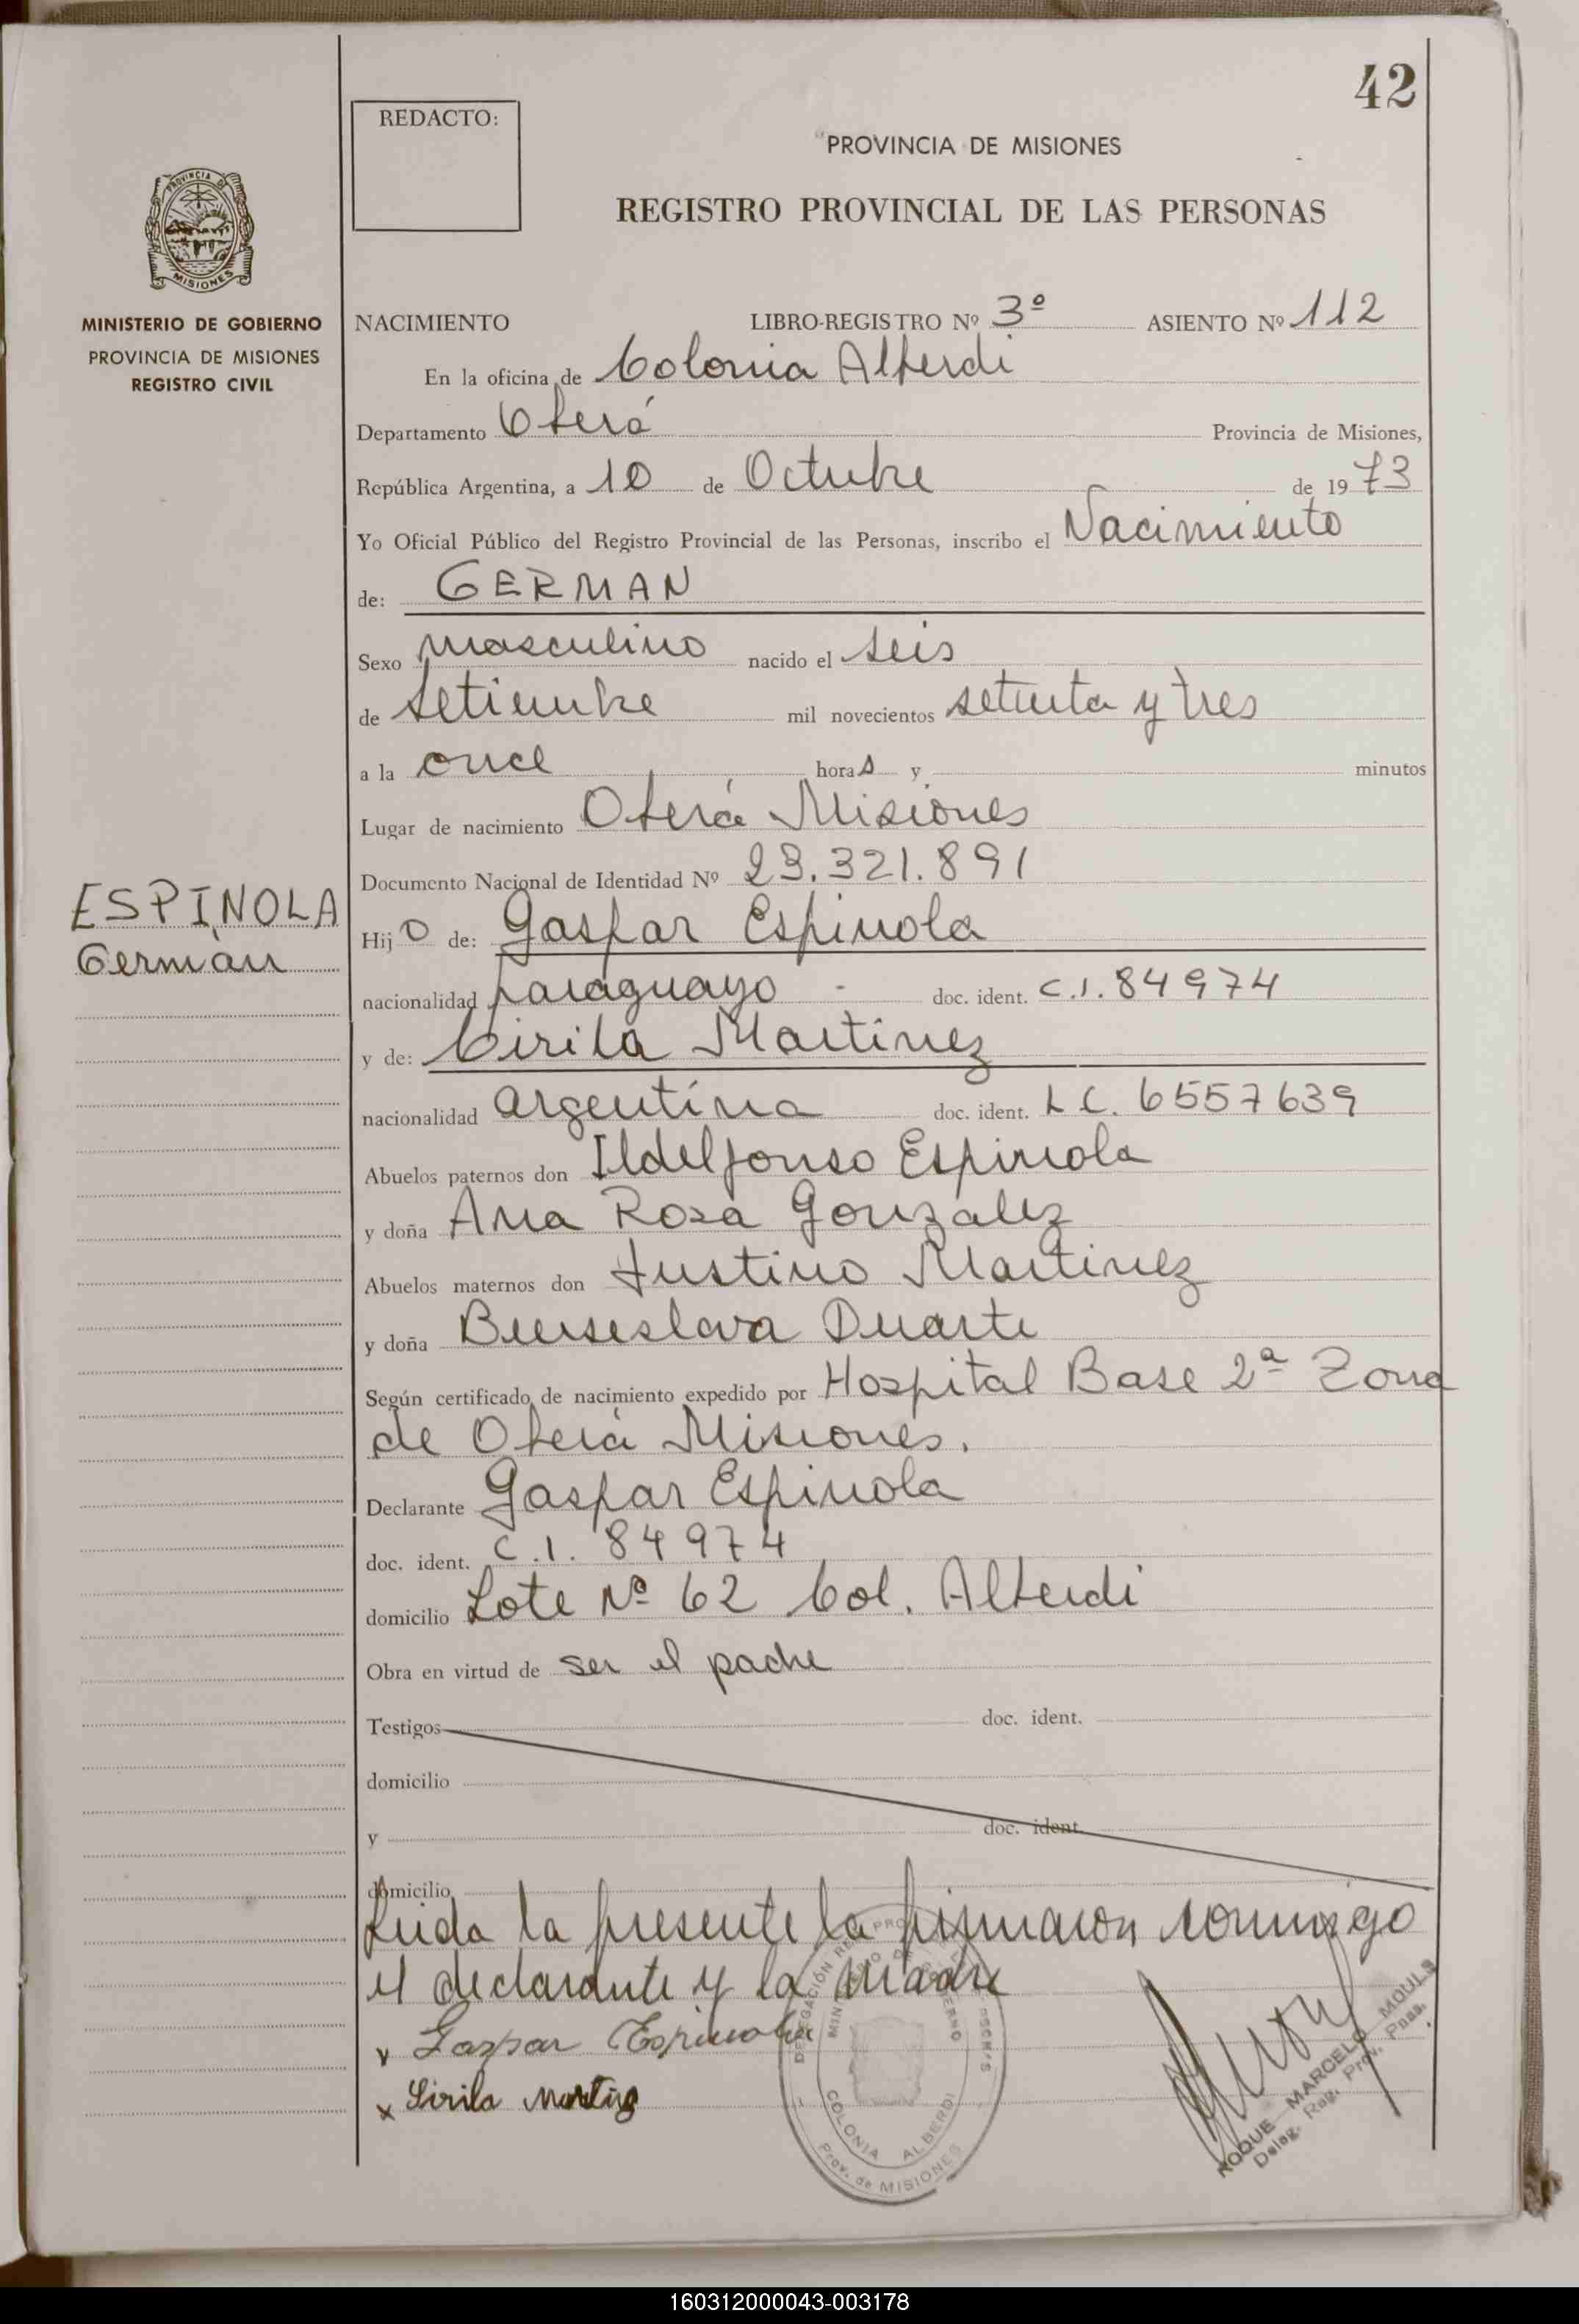 42
REDACTO:
PROVINCIA DE MISIONES
REGISTRO PROVINCIAL DE LAS PERSONAS
PROVINCIA DE
MISIONES
MINISTERIO DE GOBIERNO
PROVINCIA DE MISIONES
REGISTRO CIVIL
NACIMIENTO LIBRO-REGISTRO Nº 3º ASIENTO Nº 112
En la oficina de Colonia Alberdi
Departamento Oberá Provincia de Misiones,
República Argentina, a 10 de Octubre de 1973
Yo Oficial Público del Registro Provincial de las Personas, inscribo el Nacimiento
de: GERMAN
Sexo masculino nacido el seis
de setiembre mil novecientos setenta y tres
a la once horas y minutos
Lugar de nacimiento Oberá Misiones
Documento Nacional de Identidad Nº 23.321.891
ESPINOLA
Germán
Hijo de: Gaspar Espinola
nacionalidad paraguayo - doc. ident. C.I. 84974
y de: Cirila Martinez
nacionalidad argentina doc. ident. L C. 6557639
Abuelos paternos don Ildelfonso Espinola
y doña Ana Rosa Gonzalez
Abuelos maternos don Justino Martinez
y doña Duarte
Según certificado de nacimiento expedido por Hospital Base 2ª Zona
de Oberá Misiones.
Declarante Gaspar Espinola
doc. ident. C.I. 84974
domicilio Lote Nº 62 Col. Alberdi
Obra en virtud de ser el padre
Testigos doc. ident.
domicilio
y doc. ident.
domicilio
Leida la presente la firmaron conmigo
el declarante y la madre
x Gaspar Espinola
x Sirila
COLONIA ALBERDI
Prov. de MISIONES
ROQUE MARCELO MOULS
Deleg. Reg. Prov. Pnas.
160312000043-003178